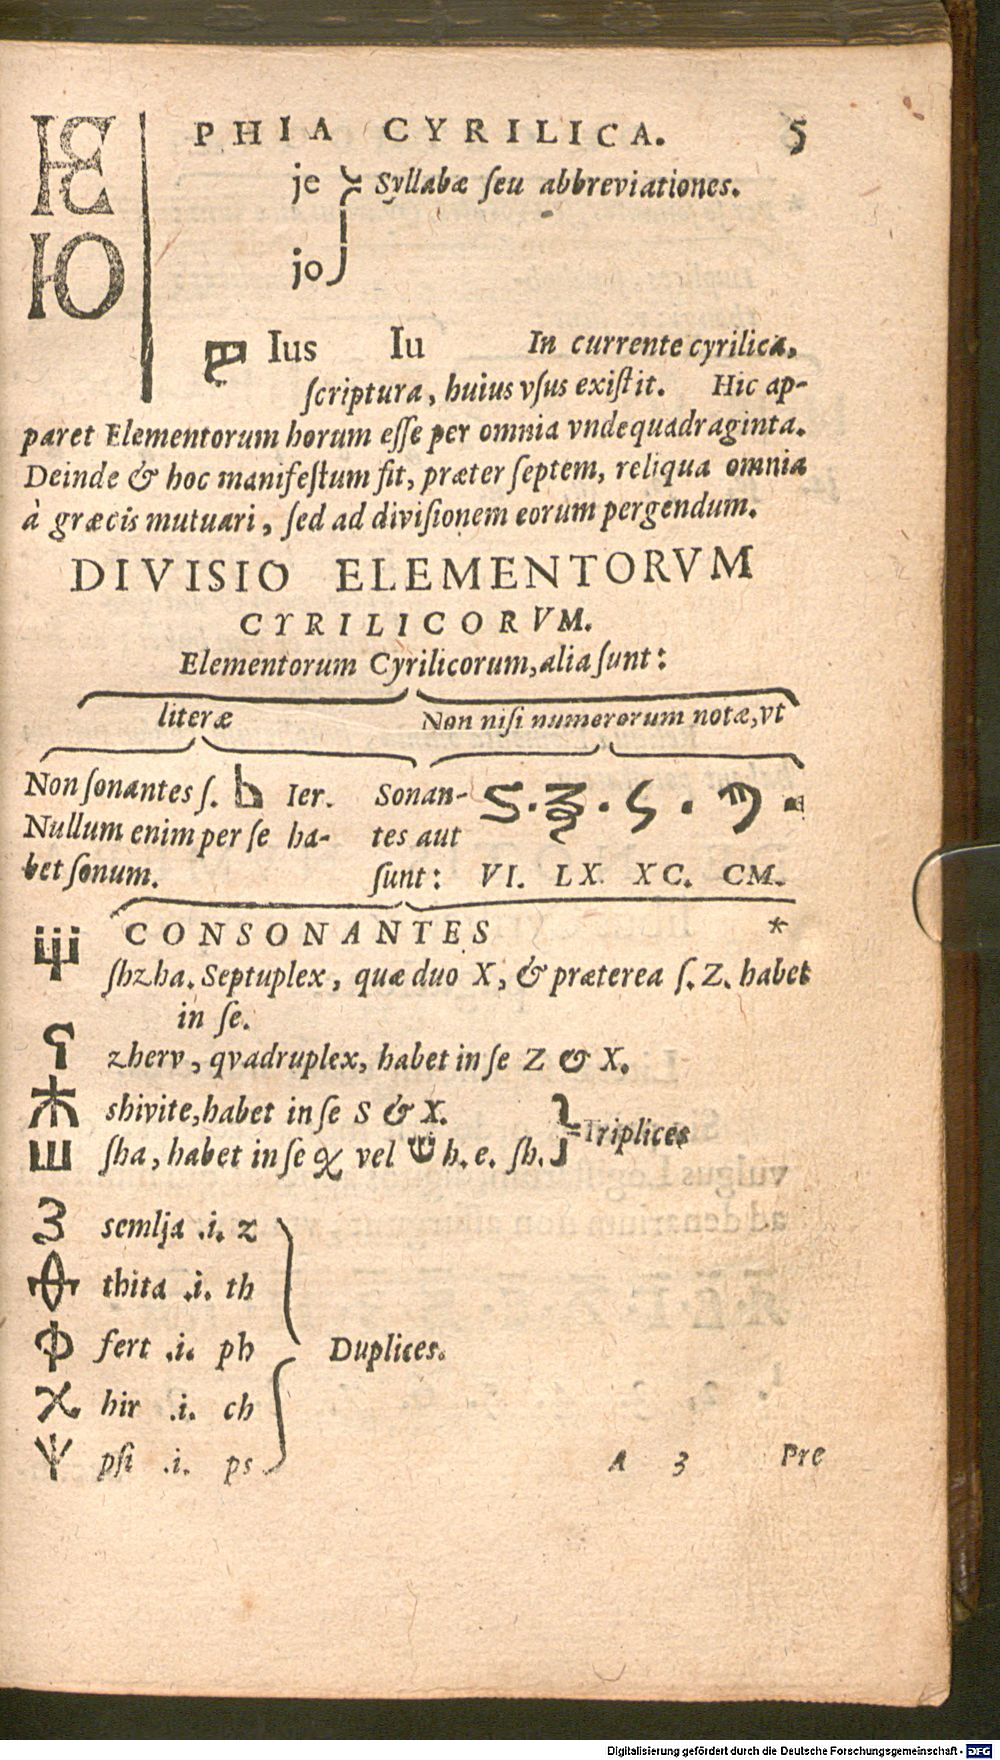 PHIA CYRILICA. 5
Ѥ je Syllabæ ſeu abbreviationes.
Ю jo
Ius Iu In currente cyrilica,
ſcriptura, huius vſus exiſtit. Hic ap-
paret Elementorum horum eſſe per omnia vndequadraginta.
Deinde & hoc manifeſtum fit, præter ſeptem, reliqua omnia
à græcis mutuari, ſed ad diviſionem eorum pergendum.
DIVISIO ELEMENTORVM
CYRILICORVM.
Elementorum Cyrilicorum, alia ſunt:
literæ Non niſi numerorum notæ, vt
Non ſonantes ſ. Ь Ier. Sonan- Ѕ · Ѯ · Ҁ ·
Nullum enim per ſe ha- tes aut
bet ſonum. ſunt: VI. LX. XC. CM.
CONSONANTES *
Щ ſhzha. Septuplex, quæ duo X, & præterea ſ. Z. habet
in ſe.
zherv, qvadruplex, habet in ſe Z & X.
Ж shivite, habet in ſe S & X.
Ш ſha, habet in ſe vel h. e. ſh. Triplices
З semlja .i. z
Ѳ thita .i. th
Ф fert .i. ph Duplices.
Х hir .i. ch
Ѱ pſi .i. ps
A 3 Pre
Digitalisierung gefördert durch die Deutsche Forschungsgemeinschaft - DFG